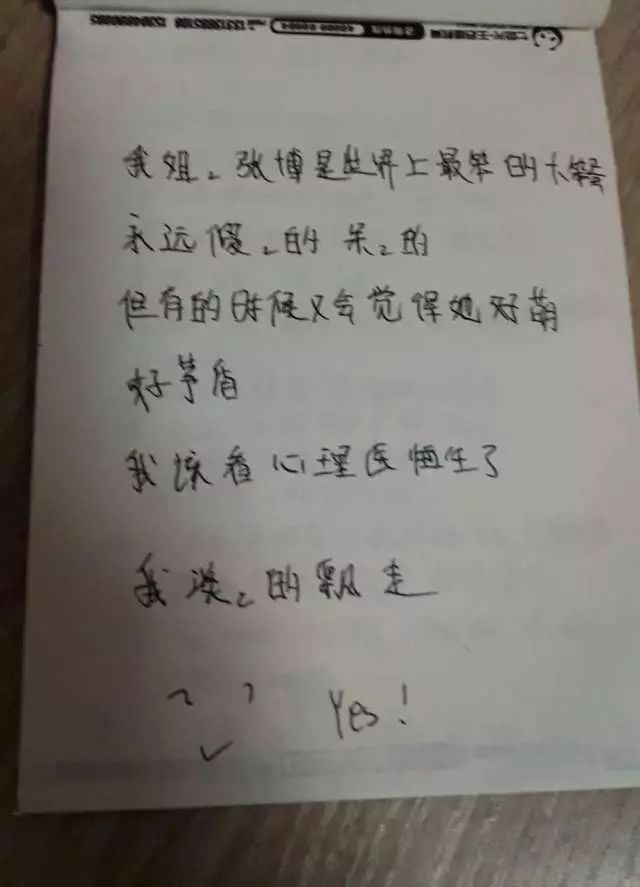 我姐。张博是世界上最笨的大笨蛋
永远傻2的呆2的
但有的时候又会觉得她好萌
好茅盾
我该看心理医恒生了
我淡2的飘走
Yes!